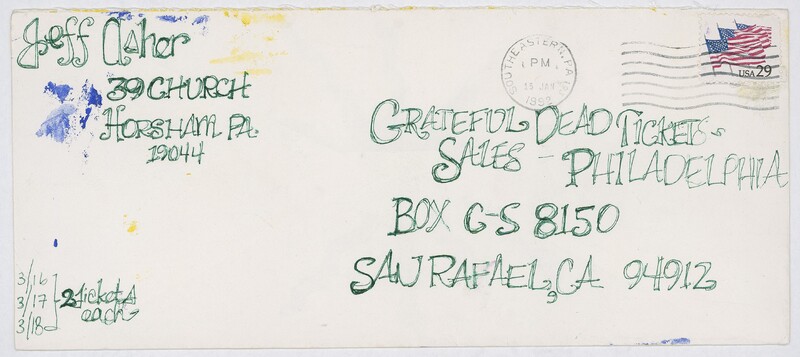 Jeff Asher
39 CHURCH
HORSHAM PA.
19044
SOUTHEASTERN, PA
PM
15 JAN
1993
USA 29
GRATEFUL DEAD TICKETS
SALES - PHILADELPHIA
BOX C-S 8150
SAN RAFAEL, CA 94912
3/16
3/17
3/18
2 tickets
each